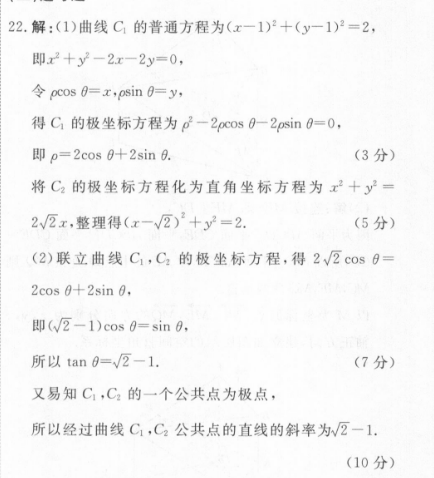 22.解:(1)曲线 C₁ 的普通方程为(x−1)²+(y−1)²=2,
即x²+y²−2x−2y=0,
令 ρcos θ=x,ρsin θ=y,
得 C₁ 的极坐标方程为 ρ²−2ρcos θ−2ρsin θ=0,
即 ρ=2cos θ+2sin θ. (3 分)
将 C₂ 的极坐标方程化为直角坐标方程为 x²+y²=
2√2x,整理得(x−√2)²+y²=2. (5 分)
(2)联立曲线 C₁,C₂ 的极坐标方程,得 2√2 cos θ=
2cos θ+2sin θ,
即(√2−1)cos θ=sin θ,
所以 tan θ=√2−1. (7 分)
又易知 C₁,C₂ 的一个公共点为极点,
所以经过曲线 C₁,C₂ 公共点的直线的斜率为√2−1.
(10 分)